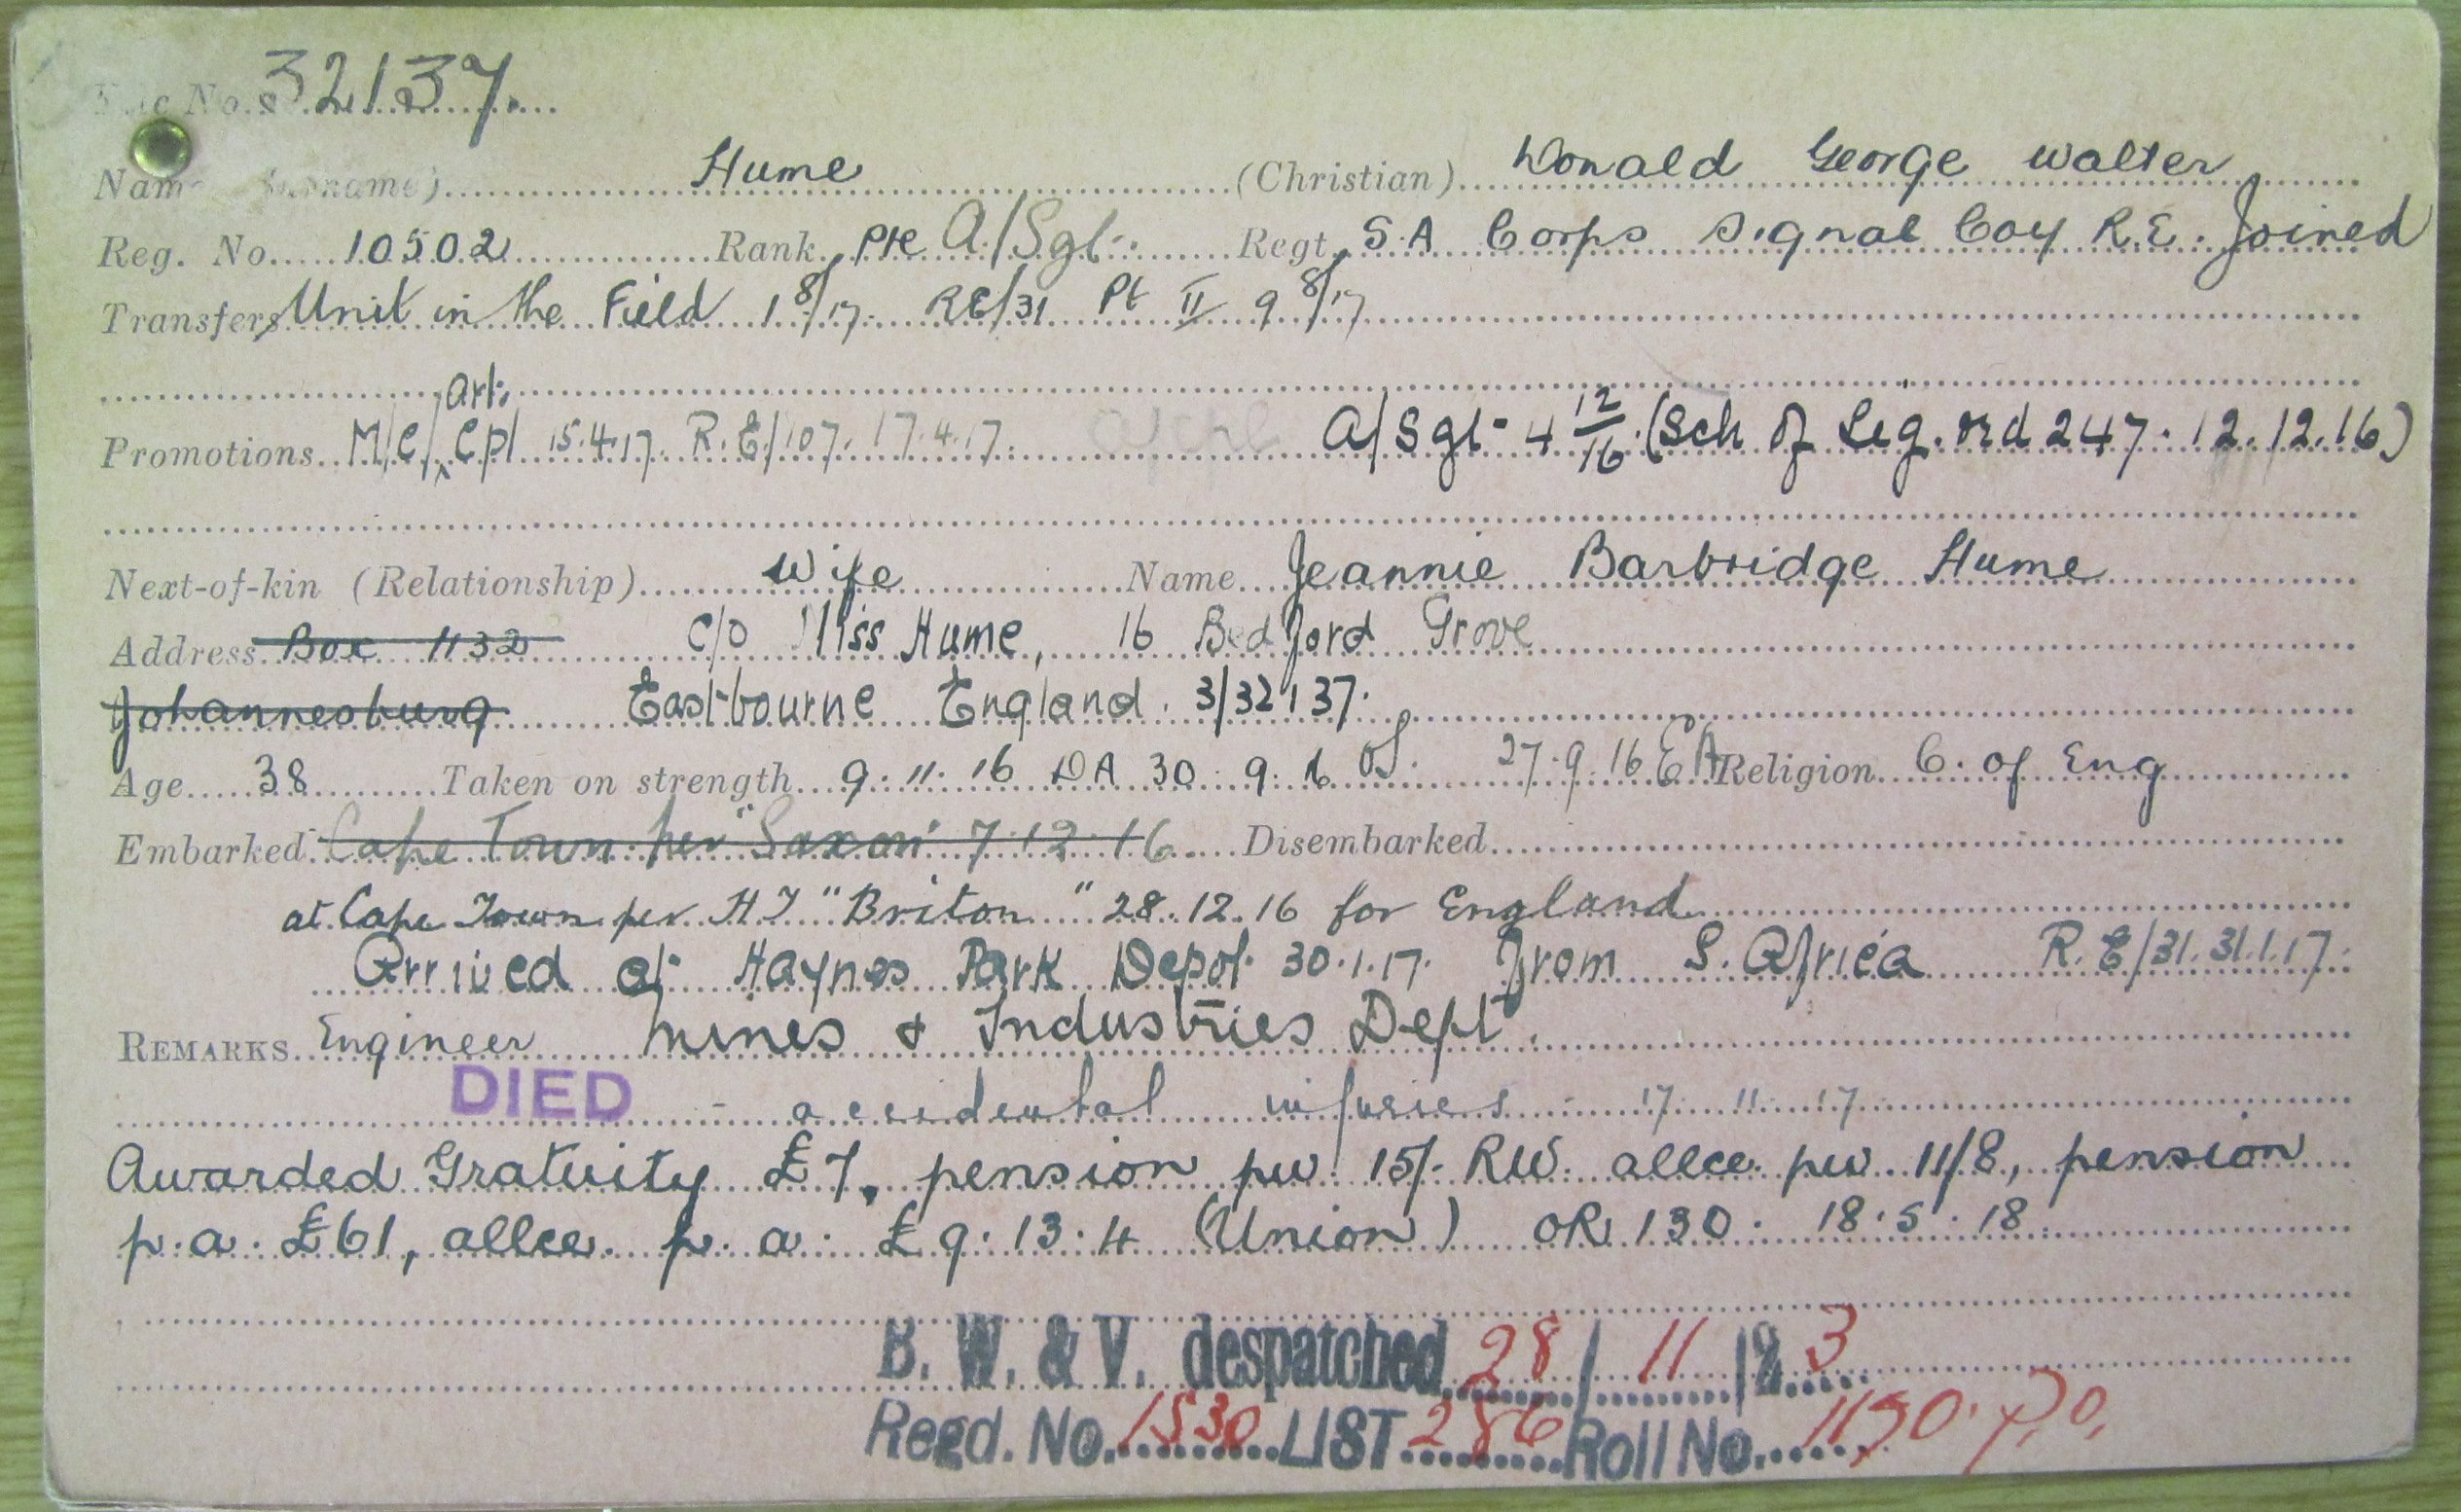 File No. 32137
Name (Surname) Hume (Christian) Donald George Walter
Reg. No. 10502 Rank Pte A/Sgt. Regt. S.A Corps Signal Coy R.E. Joined
Transfers Unit in the Field 1 8/17. RE/31 Pt II 9 8/17
art.
Promotions M/C/ Cpl 15.4.17. R.E/107. 17.4.17. A/Sgt 4 12/16 (Sch of Sig. Ord 247. 12.12.16)
Next-of-kin (Relationship) Wife Name Jeannie Barbridge Hume
Address Box 1132 C/o Miss Hume, 16 Bedford Grove
Johannesburg Eastbourne England. 3/32137.
Age 38 Taken on strength 9.11.16 DA 30.9.16 27.9.16 Religion C. of Eng
Embarked Cape Town per "Saxon" 7.12.16 Disembarked
at Cape Town per H.T "Briton" 28.12.16 for England
Arrived at Haynes Park Depot 30.1.17. from S. Africa R.E/31.31.1.17.
REMARKS Engineer Mines & Industries Dept.
DIED - accidental injuries 17 11 17
Awarded Gratuity £7, pension pw. 15/- RW. allce. pw. 11/8, pension
p.a. £61, allce. p.a. £9.13.4 (Union) OR 130. 18.5.18.
B. W. & V. despatched 28/11/23
Regd. No. 1530 LIST 286 Roll No. 1190